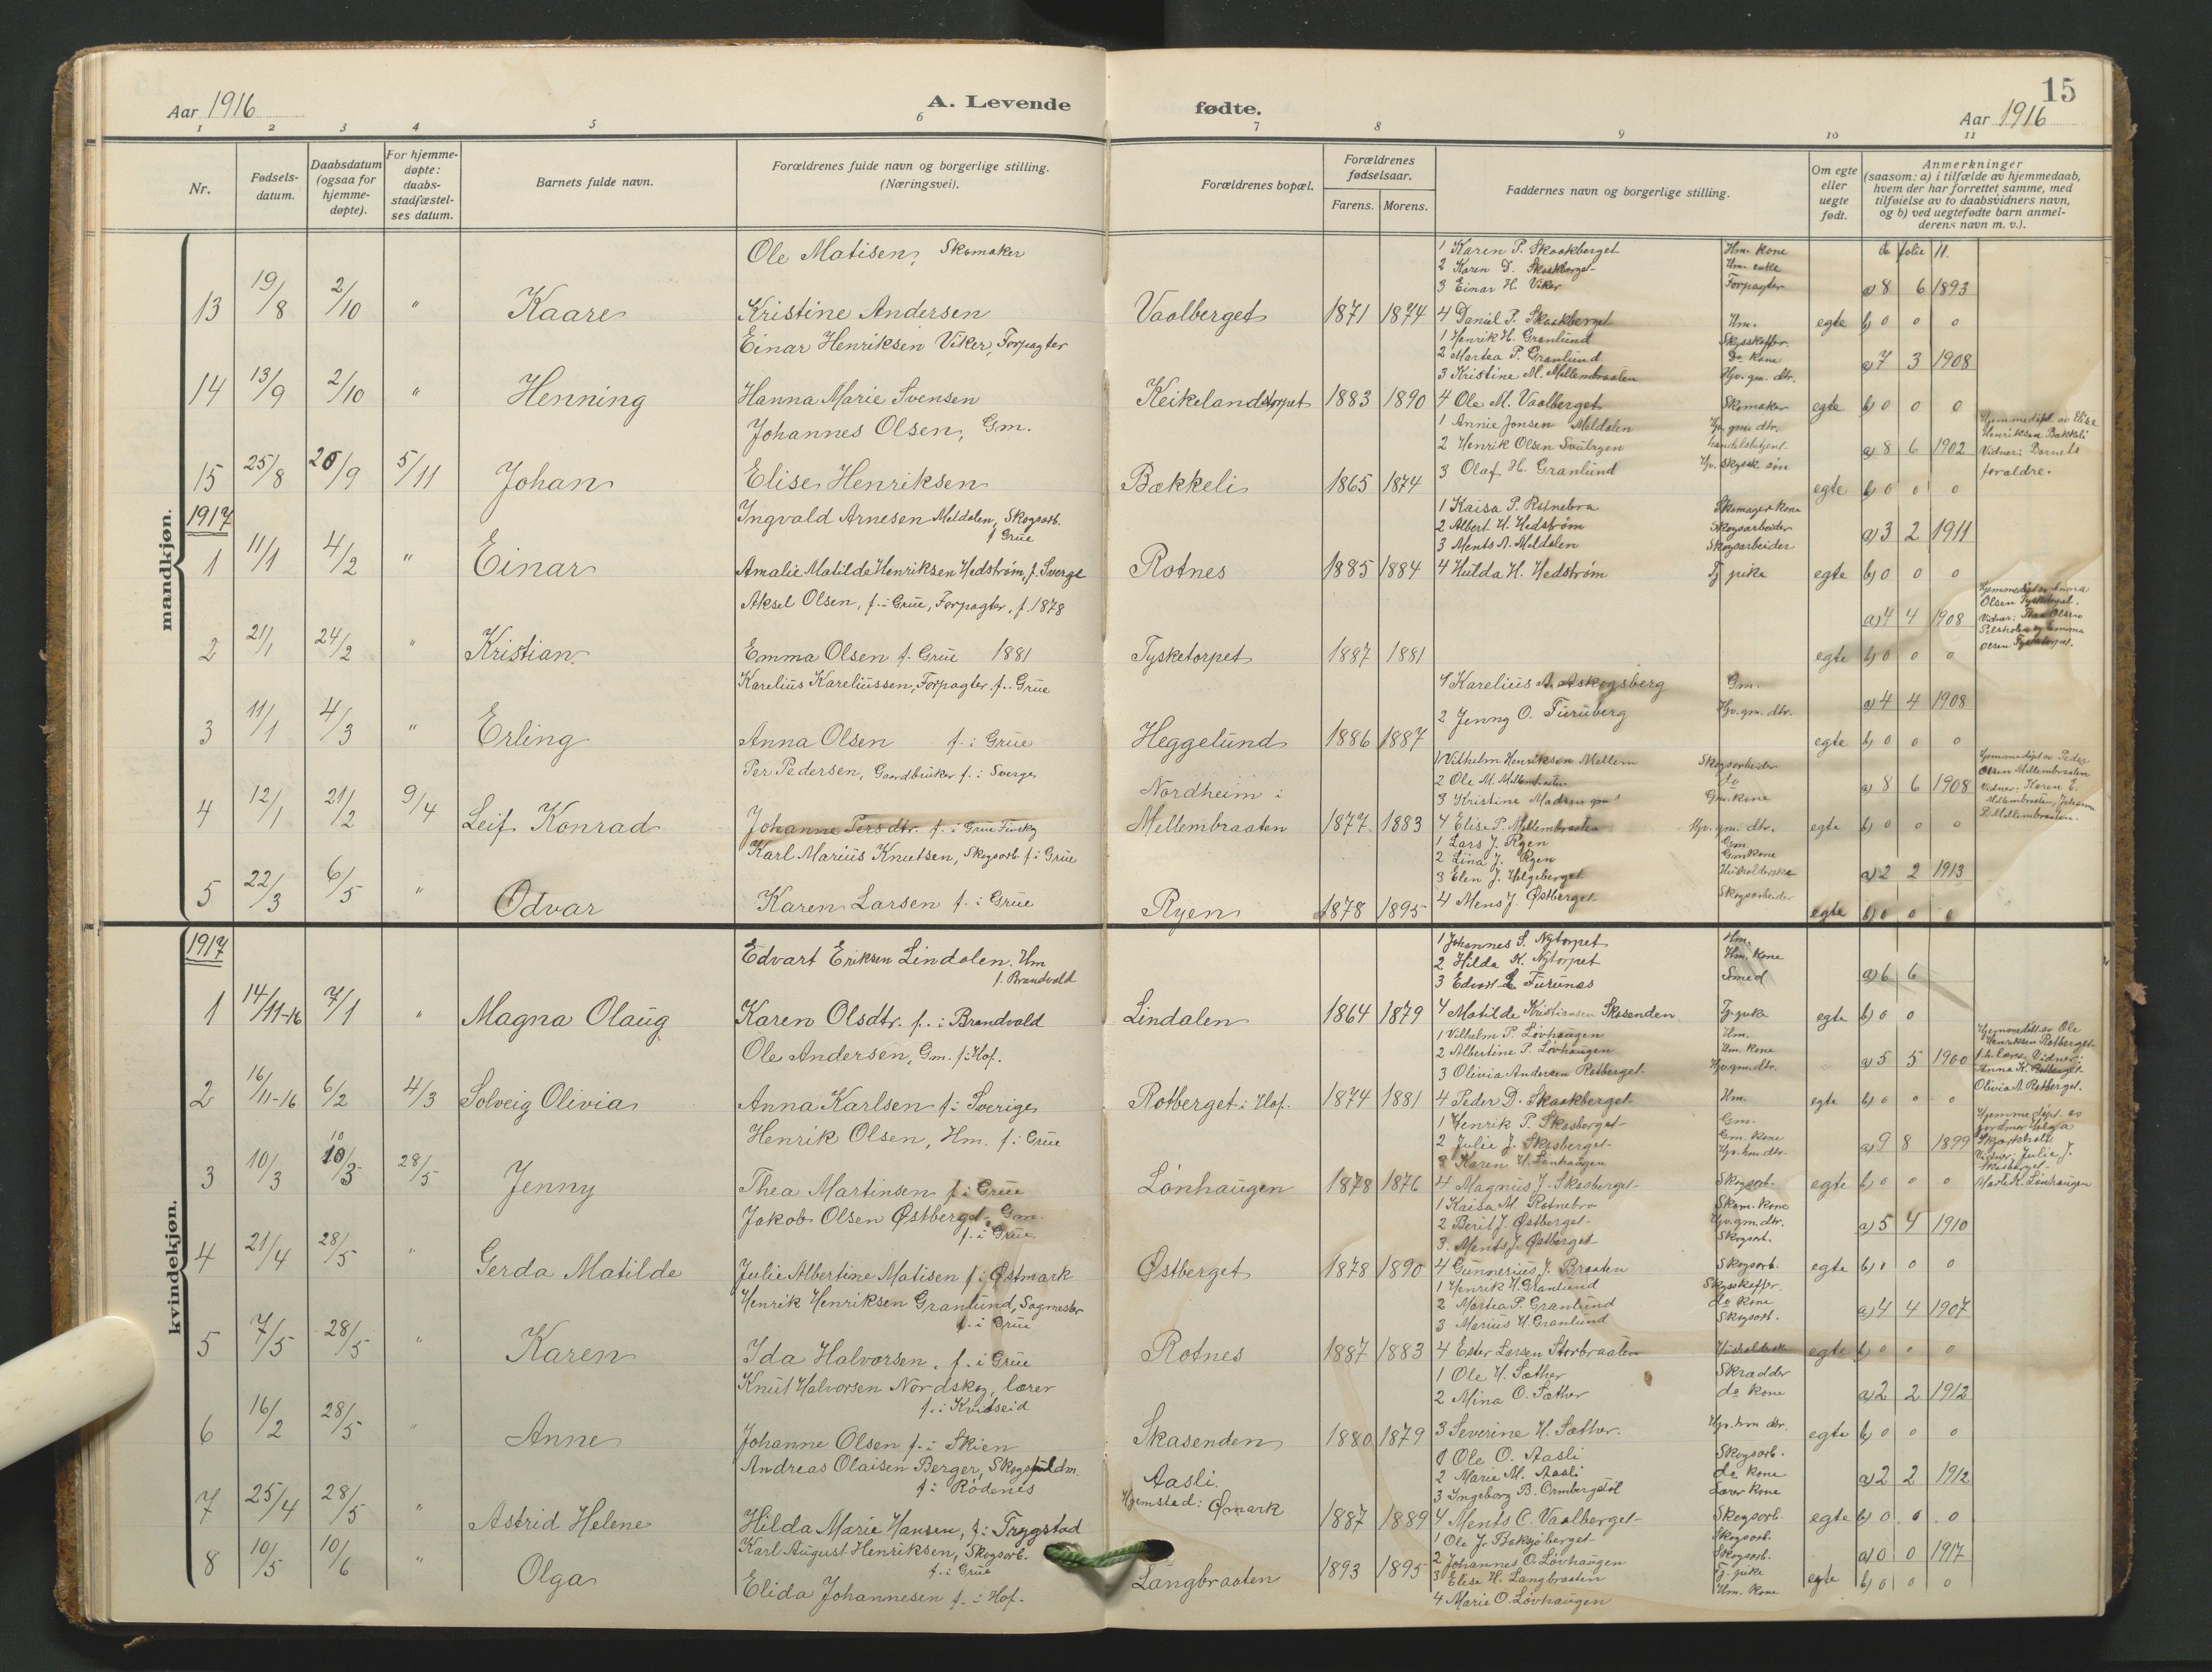 15
Aar 1916
A. Levende fødte.
Aar 1916
1 2 3 4 5 6 7 8 9 10 11
Nr.
Fødsels-
datum.
Daabsdatum
(ogsaa for
hjemme-
døpte).
For hjemme-
døpte:
daabs-
stadfæstel-
ses datum.
Barnets fulde navn.
Forældrenes fulde navn og borgerlige stilling.
(Næringsvei).
Forældrenes bopæl.
Forældrenes
fødselsaar.
Farens. Morens.
Faddernes navn og borgerlige stilling.
Om egte
eller
uegte
født.
Anmerkninger
(saasom: a) i tilfælde av hjemmedaab,
hvem der har forrettet samme, med
tilføielse av to daabsvidners navn,
og b) ved uegtefødte barn anmel-
derens navn m. v.).
mandkjøn.
Ole Matisen, Skomaker
1 Karen P. Skaakberget Hm. kone
folie 11.
2 Karen D. Skaakberget Hm. enke
3 Einar H. Viker Forpagter a) 8 6 1893
13 19/8 2/10 " Kaare Kristine Andersen Vaalberget 1871 1874 4 Daniel P. Skaakberget Hm. egte b) 0 0 0
Einar Henriksen Viker, Forpagter
1 Henrik H. Granlund Skysskaffer.
2 Martea P. Granlund Do kone
3 Kristine M. Mellembraaten Hjv. gm. dtr. a) 7 3 1908
14 13/9 2/10 " Henning Hanna Marie Svensen Keikelandstorpet 1883 1890 4 Ole M. Vaalberget Skomaker egte b) 0 0 0
Johannes Olsen, Gm.
1 Annie Jonsen Meldalen Hjv. gm. dtr.
2 Henrik Olsen handelsbetjent. a) 8 6 1902
Hjemmedøpt av Elise
Henriksen Bækkeli
Vidner: Barnets
forældre.
15 25/8 26/9 5/11 Johan Elise Henriksen Bækkeli 1865 1874 3 Olaf H. Granlund Hjv. skyssk. søn egte b) 0 0 0
1917
Ingvald Arnesen Meldalen, Skogsarb.
f Grue
1 Kaisa P. Rotnebra Skomager kone
2 Albert H. Hedstrøm Skogsarbeider
3 Ments A. Meldalen Skogsarbeider a) 3 2 1911
1 11/1 4/2 " Einar Amalie Matilde Henriksen Hedstrøm, f. Sverge Rotnes 1885 1884 4 Hulda H. Hedstrøm Tj. pike egte b) 0 0 0
Aksel Olsen, f. i Grue, Forpagter, f. 1878
a) 4 4 1908
Hjemmedøpt av Anna
Olsen Tysketorpet.
Vidner: Thea Olsen
og Emma
Olsen Tysketorpet.
2 21/1 24/2 " Kristian Emma Olsen f. Grue 1881 Tysketorpet 1887 1881 egte b) 0 0 0
Karelius Kareliussen, Forpagter. f. i Grue
1 Karelius A. Askogsberg Gm. a) 4 4 1908
2 Jenny O. Furuberg Hjv. gm. dtr.
3 11/1 4/3 " Erling Anna Olsen f. i Grue Heggelund 1886 1887 egte b) 0 0 0
Per Pedersen, Gaardbruker f. i Sverge
1 Vilhelm Henriksen Mellem Skogsarbeider
2 Ole M. Mellembraaten do
3 Kristine Madsen Gm. kone a) 8 6 1908
Hjemmedøpt av Peder
Olsen Mellembraaten
Vidner: Karen E.
Mellembraaten, Johanne
P. Mellembraaten.
4 12/1 21/2 9/4 Leif Konrad Johanne Persdtr. f. i Grue Finskog Nordheim i Mellembraaten 1877 1883 4 Elise P. Mellembraaten Hjv. gm. dtr. egte b) 0 0 0
Karl Marius Knutsen, Skogsarb. f. i Grue
1 Lars J. Ryen Gm.
2 Lina J. Ryen Gm kone
3 Elen J. Helgeberget Husholderske a) 2 2 1913
5 22/3 6/5 " Odvar Karen Larsen f. i Grue Ryen 1878 1895 4 Mens J. Østberget Skogsarbeider egte b) 0 0 0
kvindekjøn.
1917
Edvart Eriksen Lindalen. Hm
f. Brandvold
1 Johannes S. Nytorpet Hm.
2 Hilda K. Nytorpet Hm. kone
3 Edvart E. Furunes Smed a) 6 6
1 14/11-16 7/1 " Magna Olaug Karen Olsdtr. f. i Brandvold Lindalen 1864 1879 4 Matilde Kristiansen Skasenden Tj. pike egte b) 0 0
Ole Andersen, Gm. f. i Hof.
1 Vilhelm P. Løvhaugen Hm.
2 Albertine P. Løvhaugen Hm. kone
3 Olivia Andersen Rotberget Hjv. gm. dtr. a) 5 5 1900
Hjemmedøbt av Ole
Henriksen Rotberget
Vidner:
Anna K. Rotberget
Olivia A. Rotberget.
2 16/11-16 6/2 4/3 Solveig Olivia Anna Karlsen f. i Sverige Rotberget i Hof. 1874 1881 4 Peder D. Skaakberget Hm. egte b) 0 0 0
Henrik Olsen, Hm. f. i Grue
1 Henrik P. Skasberget Gm.
2 Julie J. Skasberget Gm. kone
3 Karen H. Lønhaugen Hjv. hm. dtr. a) 9 8 1899
Hjemmedøpt av
jordmor Helga
Vidner: Julie J.
Skasberget
Marte K. Lønhaugen
3 10/3 10/3 28/5 Jenny Thea Martinsen f. i Grue Lønhaugen 1878 1876 4 Magnus J. Skasberget Skogsarb. egte b) 0 0 0
Jakob Olsen Østberget, Gm.
f. i Grue
1 Kaisa M. Rotnebro Skom. kone
2 Berit J. Østberget Hjv. gm. dtr.
3. Ments J. Østberget Skogsarb. a) 5 4 1910
4 21/4 28/5 " Gerda Matilde Julie Albertine Matisen f. i Østmark Østberget 1878 1890 4 Gunnerius J. Braaten Skogsarb. egte b) 0 0 0
Henrik Henriksen Granlund, Sagmester
f. i Grue
1 Henrik H. Granlund Skysskaffer.
2 Martea P. Granlund do kone
3 Marius H. Granlund Skogsarb. a) 4 4 1907
5 7/5 28/5 " Karen Ida Halvorsen. f. i Grue Rotnes 1887 1883 4 Ester Larsen Storbraaten Husholderske egte b) 0 0 0
Knut Halvorsen Nordskog, lærer
f. i Kvitseid
1 Ole H. Sæther Skrædder
2 Mina O. Sæther do kone a) 2 2 1912
6 16/2 28/5 " Anne Johanne Olsen f. i Skien Skasenden 1880 1879 3 Severine H. Sæther. Hjv. hm dtr. egte b) 0 0 0
Andreas Olaisen Berger, Skogsfuldm.
f. i Rødenes
1 Ole O. Aasli Skogsarb.
2 Marie M. Aasli do kone
3 Ingeborg B. Ormbergstøl Lærer kone a) 2 2 1912
7 25/4 28/5 " Astrid Helene Hilda Marie Hansen, f. i Trygstad Aasli. Hjemsted: Ømark 1887 1889 4 Ments C. Vaalberget Skogsarb. egte b) 0 0 0
Karl August Henriksen, Skogsarb.
f. i Grue
1 Ole J. Baksjøberget Skogsarb.
2 Johannes O. Løvhaugen Skogsarb. a) 0 0 1917
8 10/5 10/6 " Olga Elida Johannesen f. i Hof. Langbraaten 1893 1895 3 Elise H. Langbraaten Tj. pike egte b) 0 0 0
4 Marie O. Løvhaugen Hm. kone